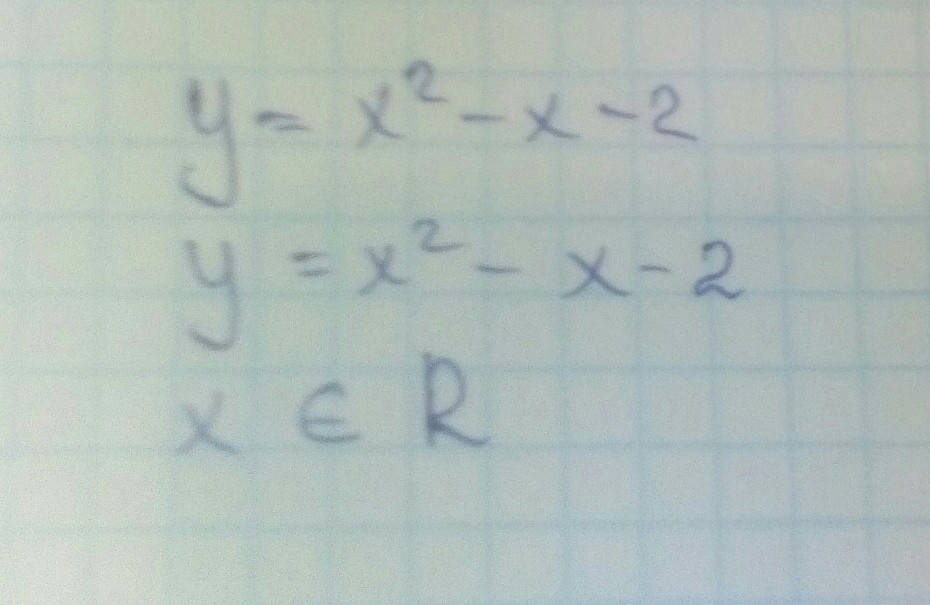 y = x² - x - 2
y = x² - x - 2
x ∈ R